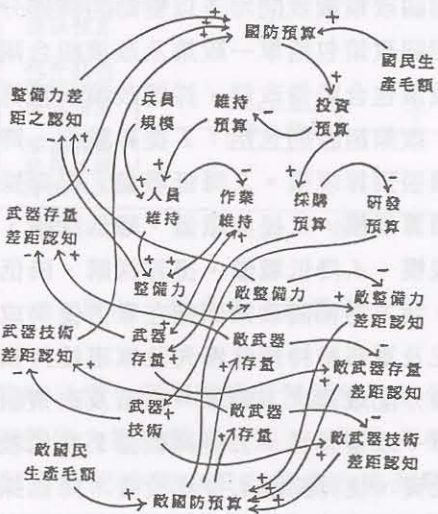 國防預算
國民生
產毛額
整備力差
距之認知
兵員
規模
維持
預算
投資
預算
人員
維持
作業
維持
採購
預算
研發
預算
武器存量
差距認知
整備力
敵整備力
敵整備力
差距認知
武器技術
差距認知
武器
存量
敵武器
存量
敵武器存量
差距認知
武器
技術
敵武器
存量
敵武器技術
差距認知
敵國民
生產毛額
敵國防預算